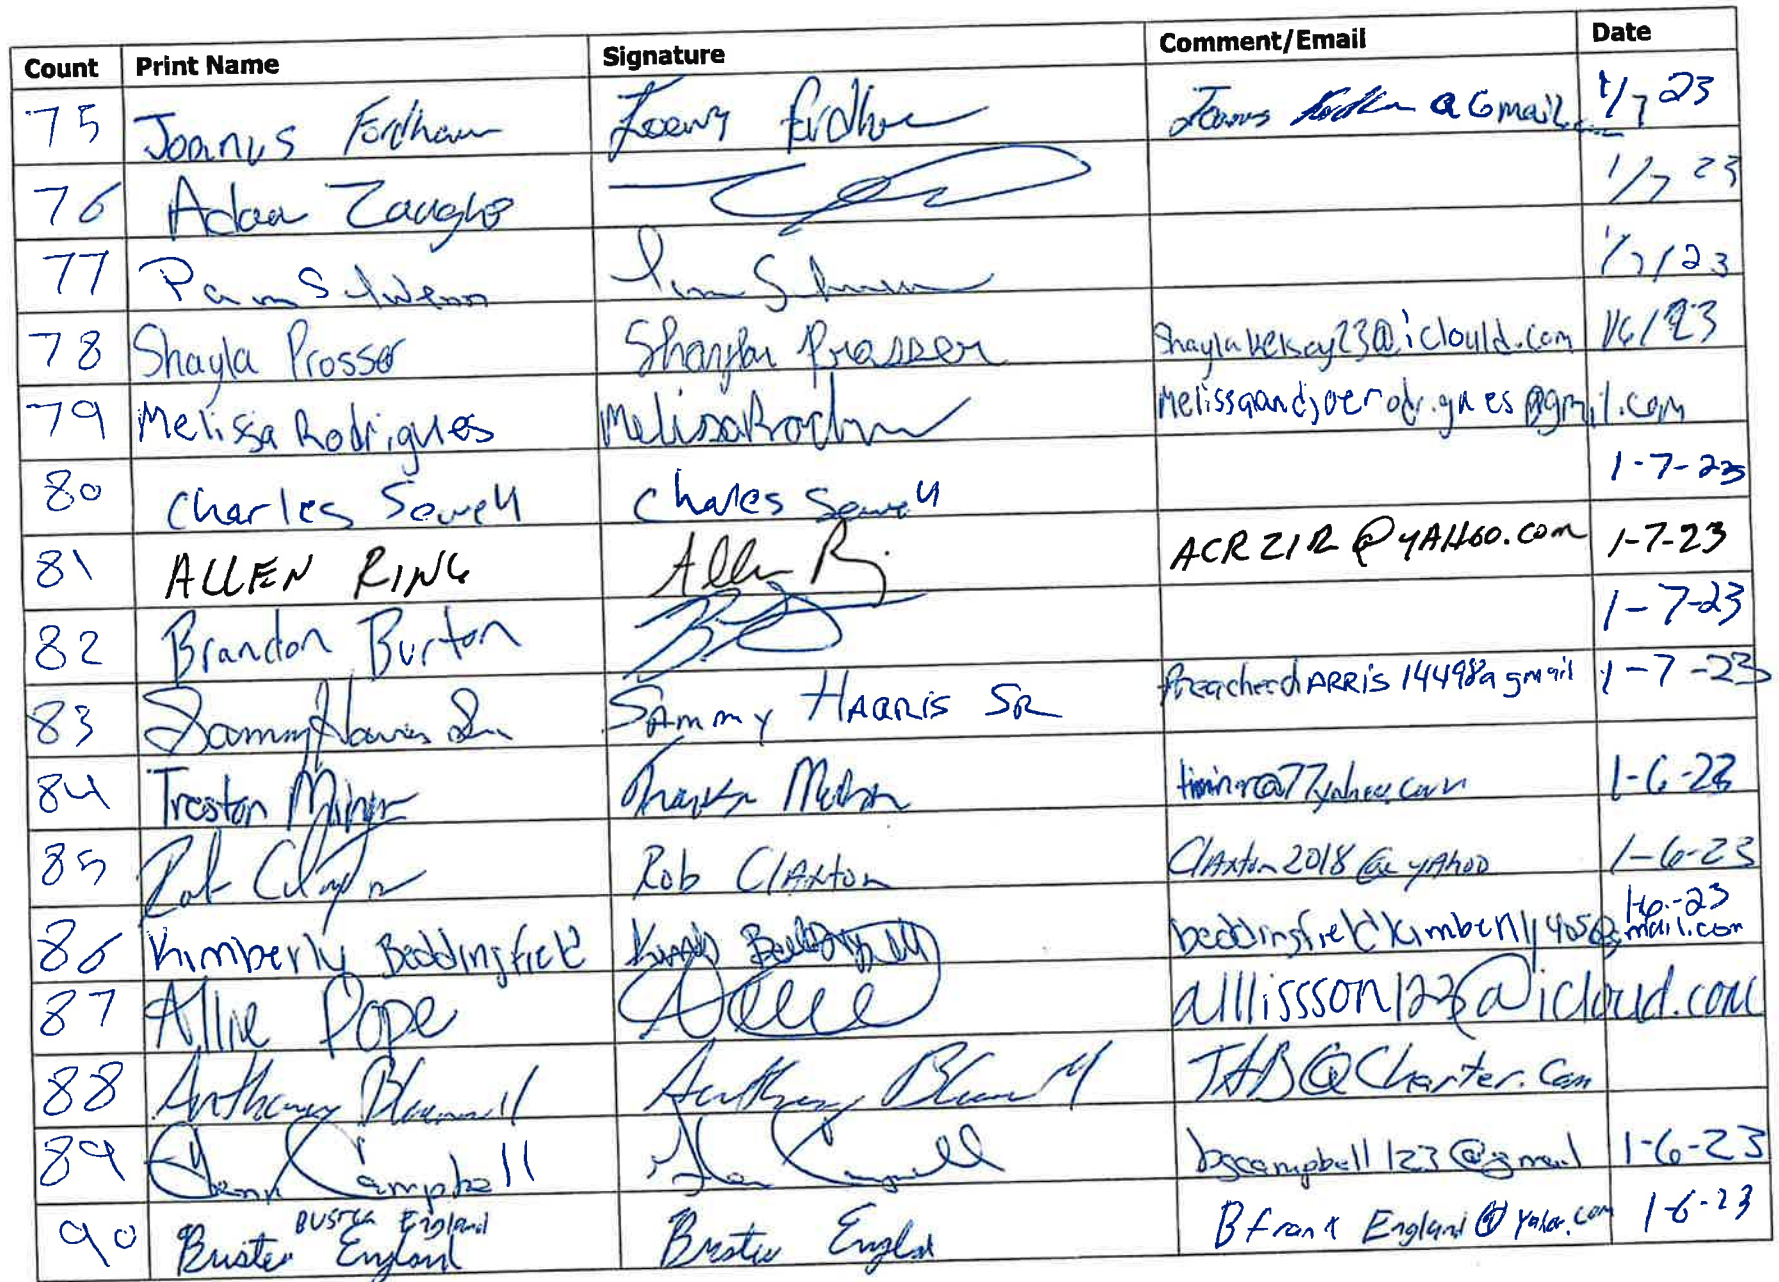 Count Print Name Signature Comment/Email Date
75 Joanys Fordham Fordham @Gmail. 1/7 23
76 Adam 1/7 23
77 Pam 1/7/23
78 Shayla Prosser Shayla Prosser 23@iclould.com 1/6/23
79 Melissa Rodrigues Melissa melissaandjoerodrigues@gmail.com
80 Charles Sewell Charles Sewell 1-7-23
81 ALLEN RING Allen R ACRZIR@YAHOO.com 1-7-23
82 Brandon Burton 1-7-23
83 Sammy Harris Sr SAmmy HARRIS SR PreacherhARRIS1449@gmail 1-7-23
84 Treston Minor 1-6-23
85 Rob Claxton Rob ClAxton ClAxton2018@yAhoo 1-6-23
86 Kimberly Beddingfield beddingfieldkimberly405@gmail.com 1-6-23
87 Allie Pope alllissson123@icloud.com
88 Anthony Anthony TAB@Charter.Com
89 Glenn Campbell Glenn Campbell bgcampbell123@gmail 1-6-23
90 Buster England BUSTER England Buster England Bfrank England@yahoo.com 1-6-23